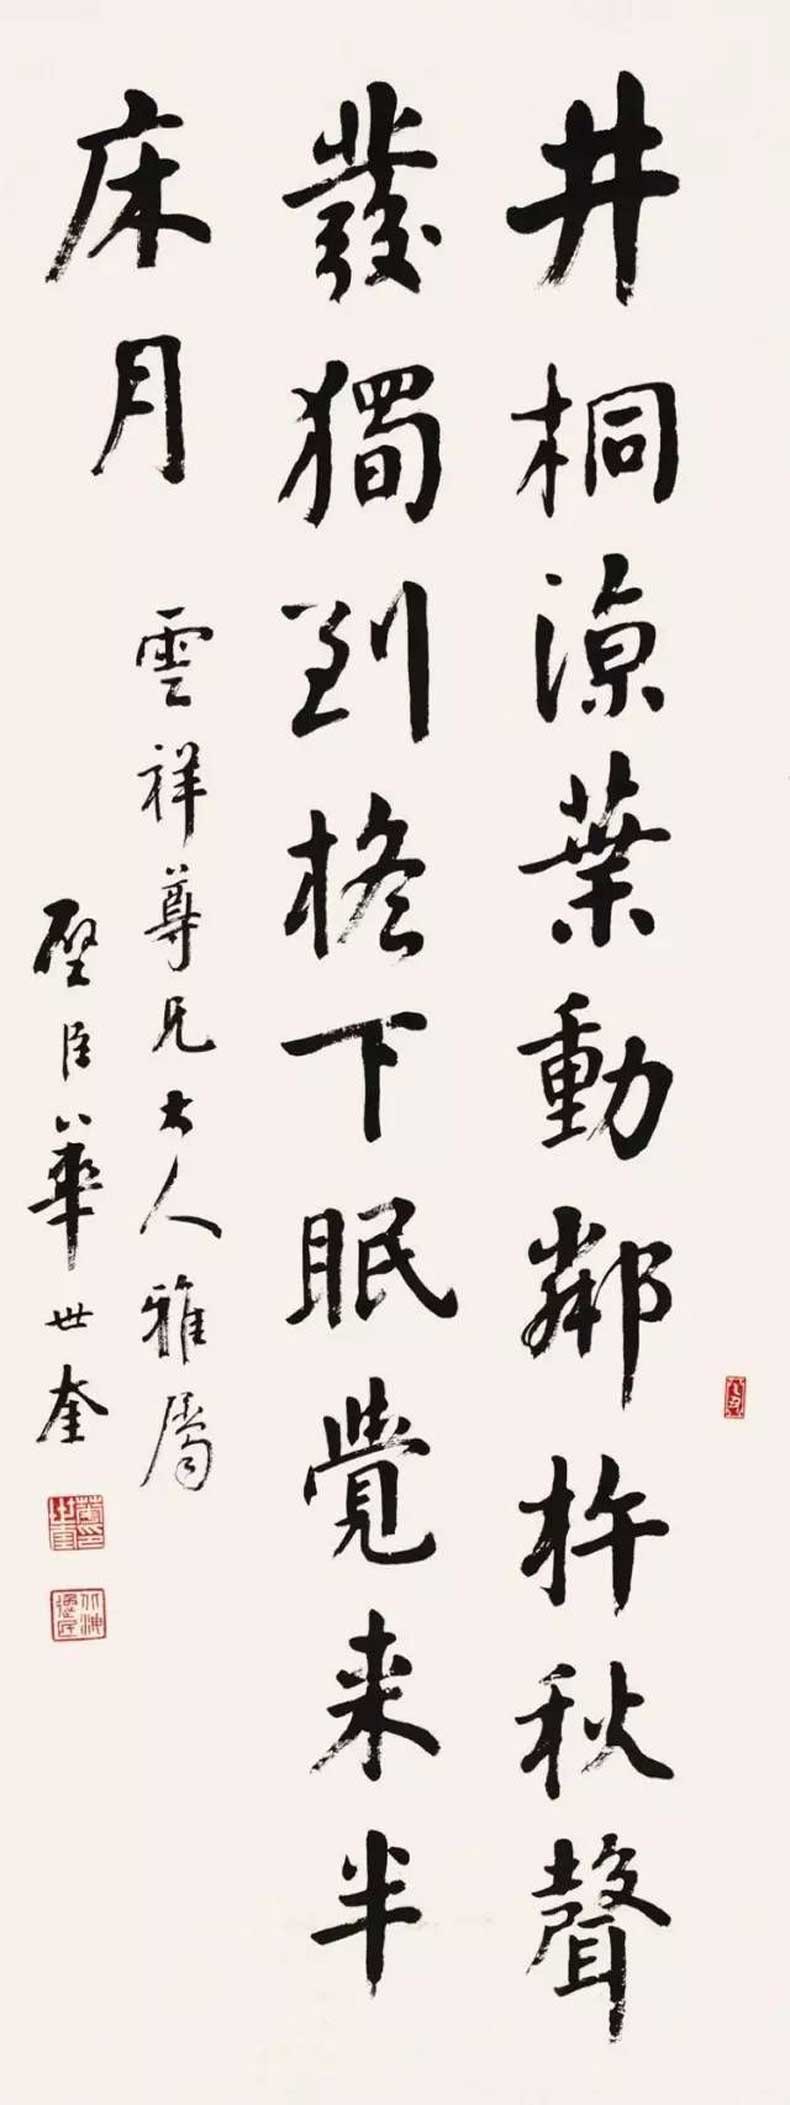 井桐涼葉動鄰杵秋聲
發獨到檐下眠覺来半
床月
雲祥尊兄大人雅屬
壁臣華世奎